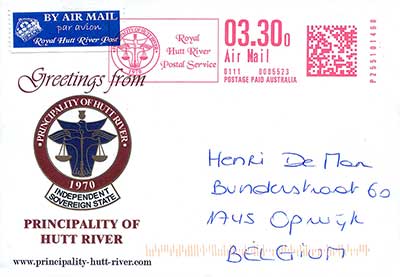 BY AIR MAIL
par avion
Royal Hutt River Post
PRINCIPALITY OF HUTT RIVER
1970
Royal
Hutt River
Postal Service
03.30
Air Mail
0111 0005523
POSTAGE PAID AUSTRALIA
P255101460
Greetings from
PRINCIPALITY OF HUTT RIVER
1970
INDEPENDENT
SOVEREIGN STATE
PRINCIPALITY OF
HUTT RIVER
www.principality-hutt-river.com
Henri De Man
Bunderstraat 60
1745 Opwijk
BELGIUM